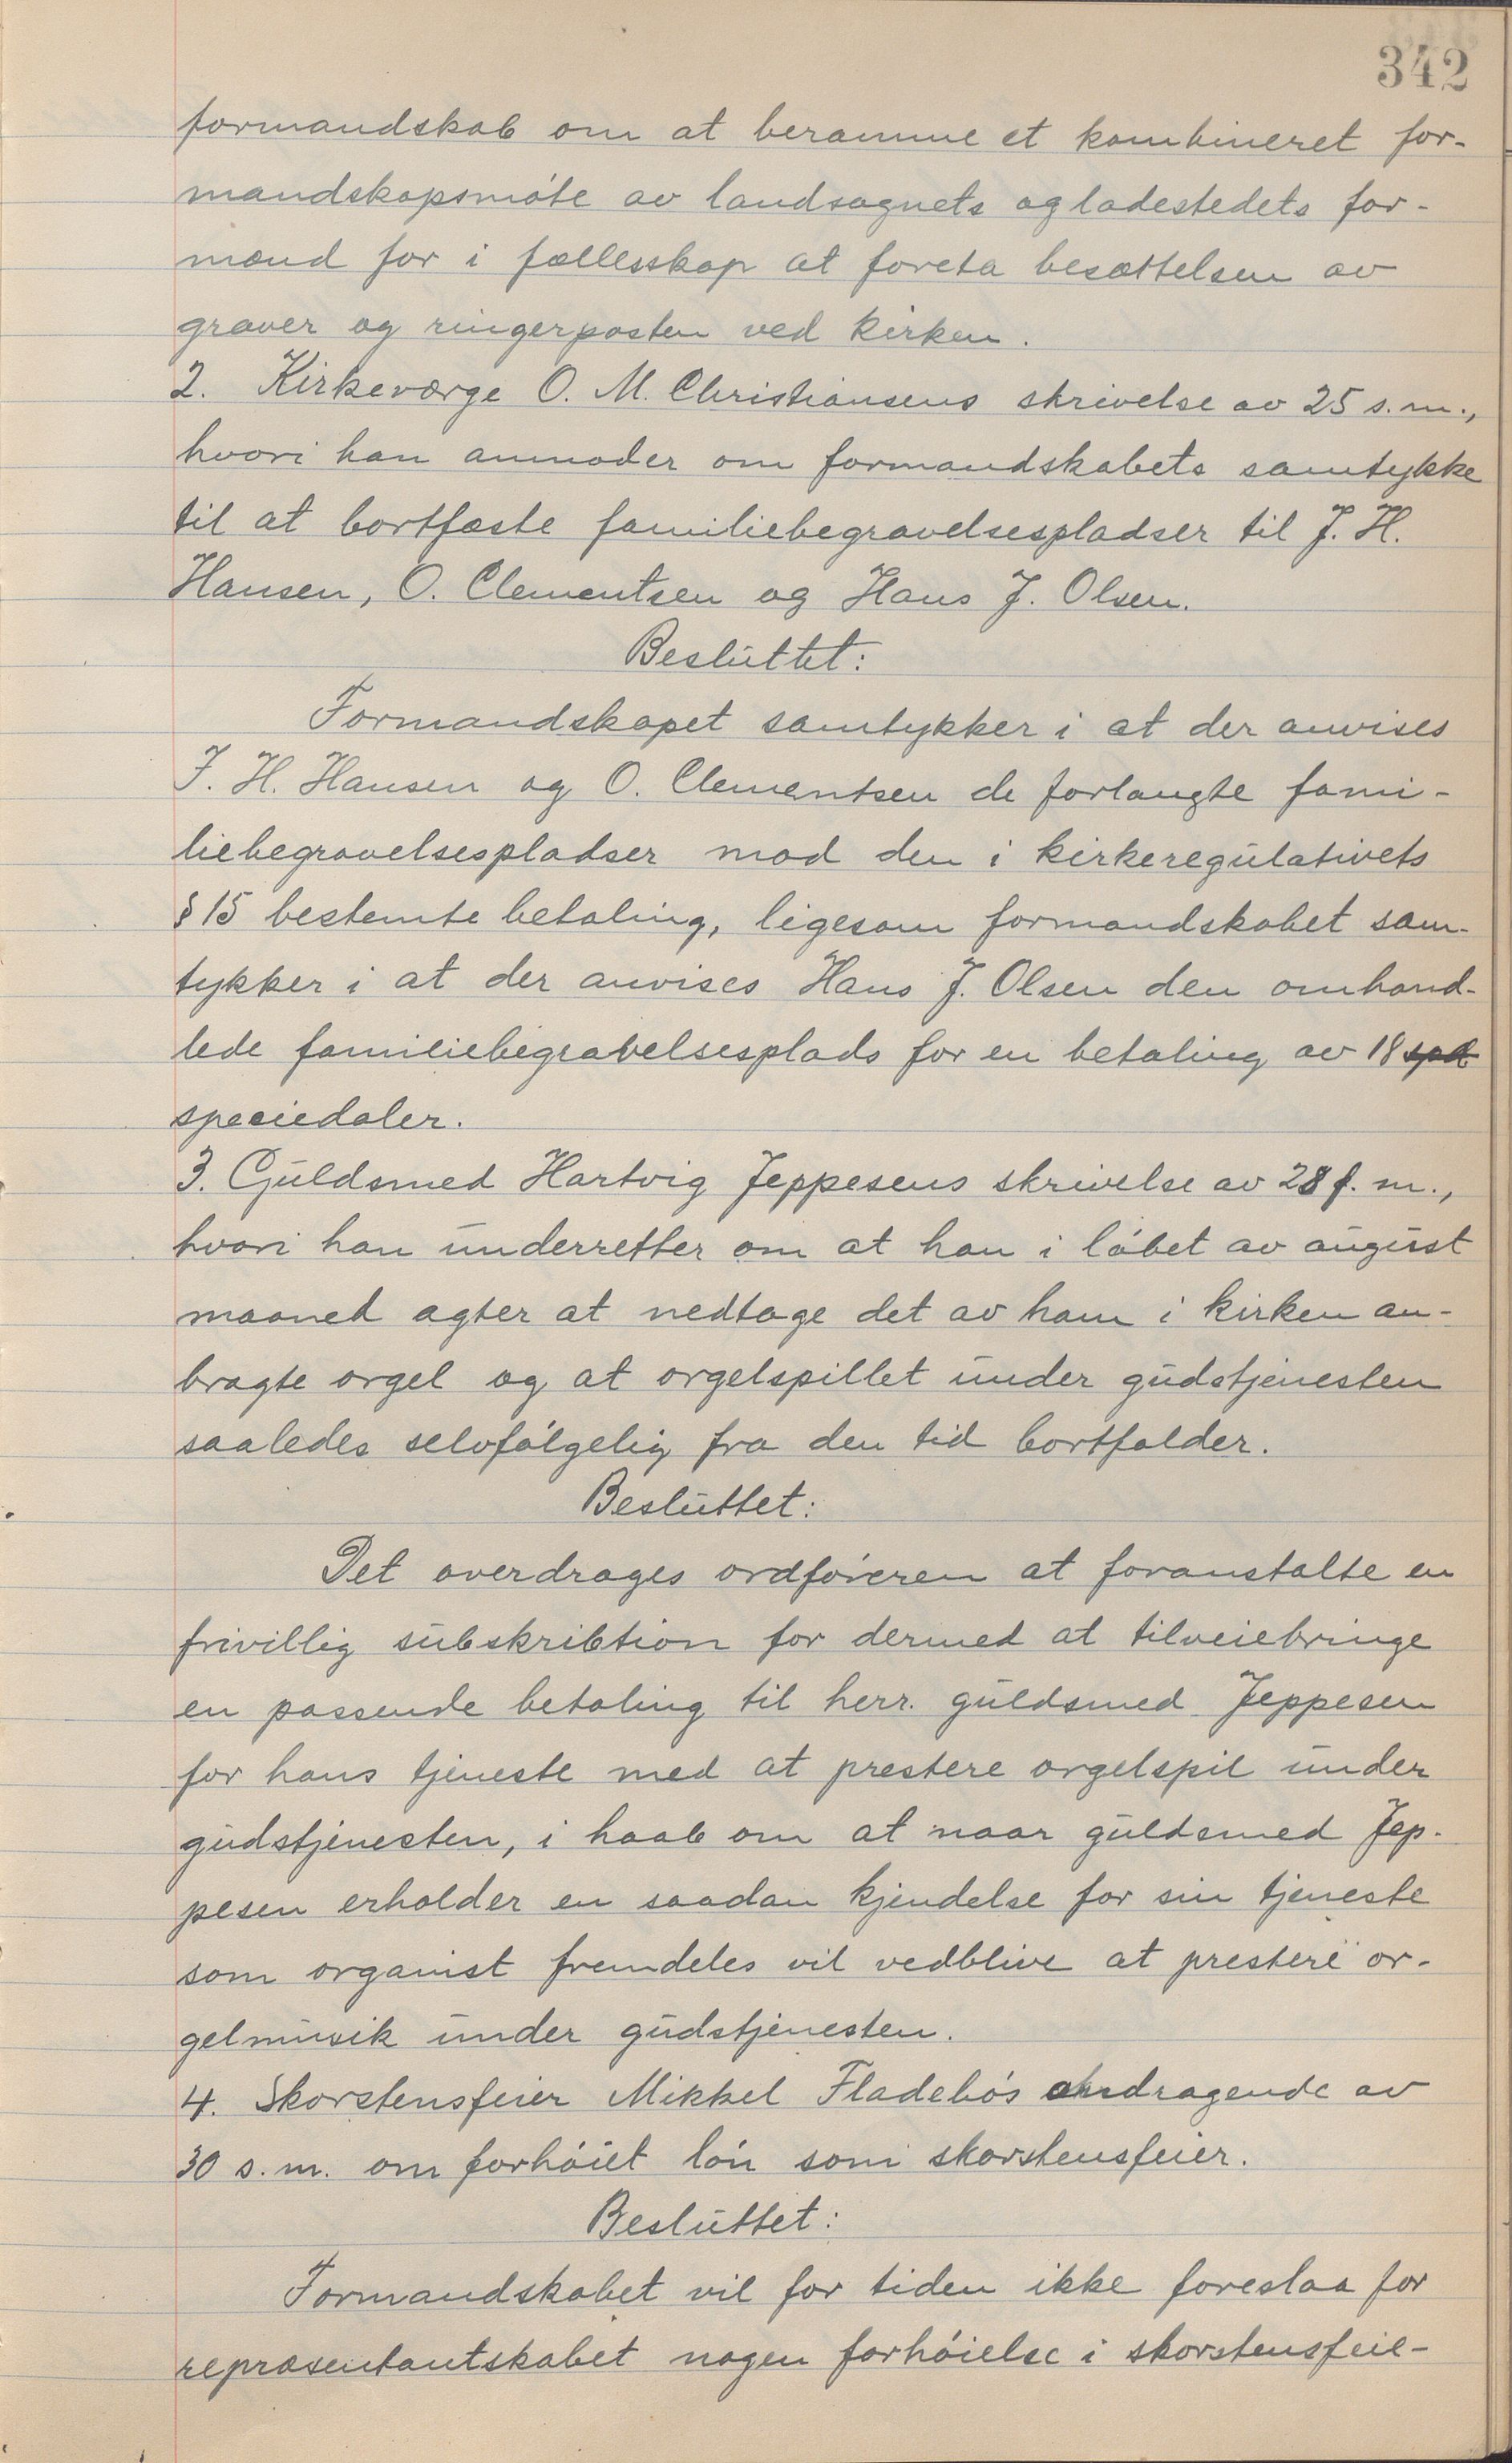 342
formandskab om at beramme et kombineret for-
mandskapsmóte av landsognets og ladestedets for-
mænd for i fællesskap at foreta besættelsen av
graver og ringerposten ved kirken.
2. Kirkeværge O. M. Christiansens skrivelse av 25 s.m.,
hvori han anmoder om formandskabets samtykke
til at bortfæste familiebegravelsespladser til J. H.
Hansen, O. Clementsen og Hans J. Olsen.
Besluttet:
Formandskapet samtykker i at der anvises
J. H. Hansen og O. Clementsen de forlangte fami-
liebegravelsespladser mod den i kirkeregulativets
§ 15 bestemte betaling, ligesom formandskabet sam-
tykker i at der anvises Hans J. Olsen den omhand-
lede familiebegravelsesplads for en betaling av 18 spd
speciedaler.
3. Guldsmed Hartvig Jeppesens skrivelse av 28 f. m.,
hvori han underretter om at han i lóbet av august
maaned agter at nedtage det av ham i kirken an-
bragte orgel og at orgelspillet under gudstjenesten
saaledes selvfólgelig fra den tid bortfalder.
Besluttet:
Det overdrages ordfóreren at foranstalte en
frivillig subskribtion for dermed at tilveiebringe
en passende betaling til herr. guldsmed Jeppesen
for hans tjeneste med at prestere orgelspil under
gudstjenesten, i haab om at naar guldsmed Jep-
pesen erholder en saadan kjendelse for sin tjeneste
som organist fremdeles vil vedblive at prestere or-
gelmusik under gudstjenesten.
4. Skorstensfeier Mikkel Fladebós andragende av
30 s.m. om forhóiet lón som skorstensfeier.
Besluttet:
Formandskabet vil for tiden ikke foreslaa for
repræsentantskabet nogen forhóielse i skorstensfeie-